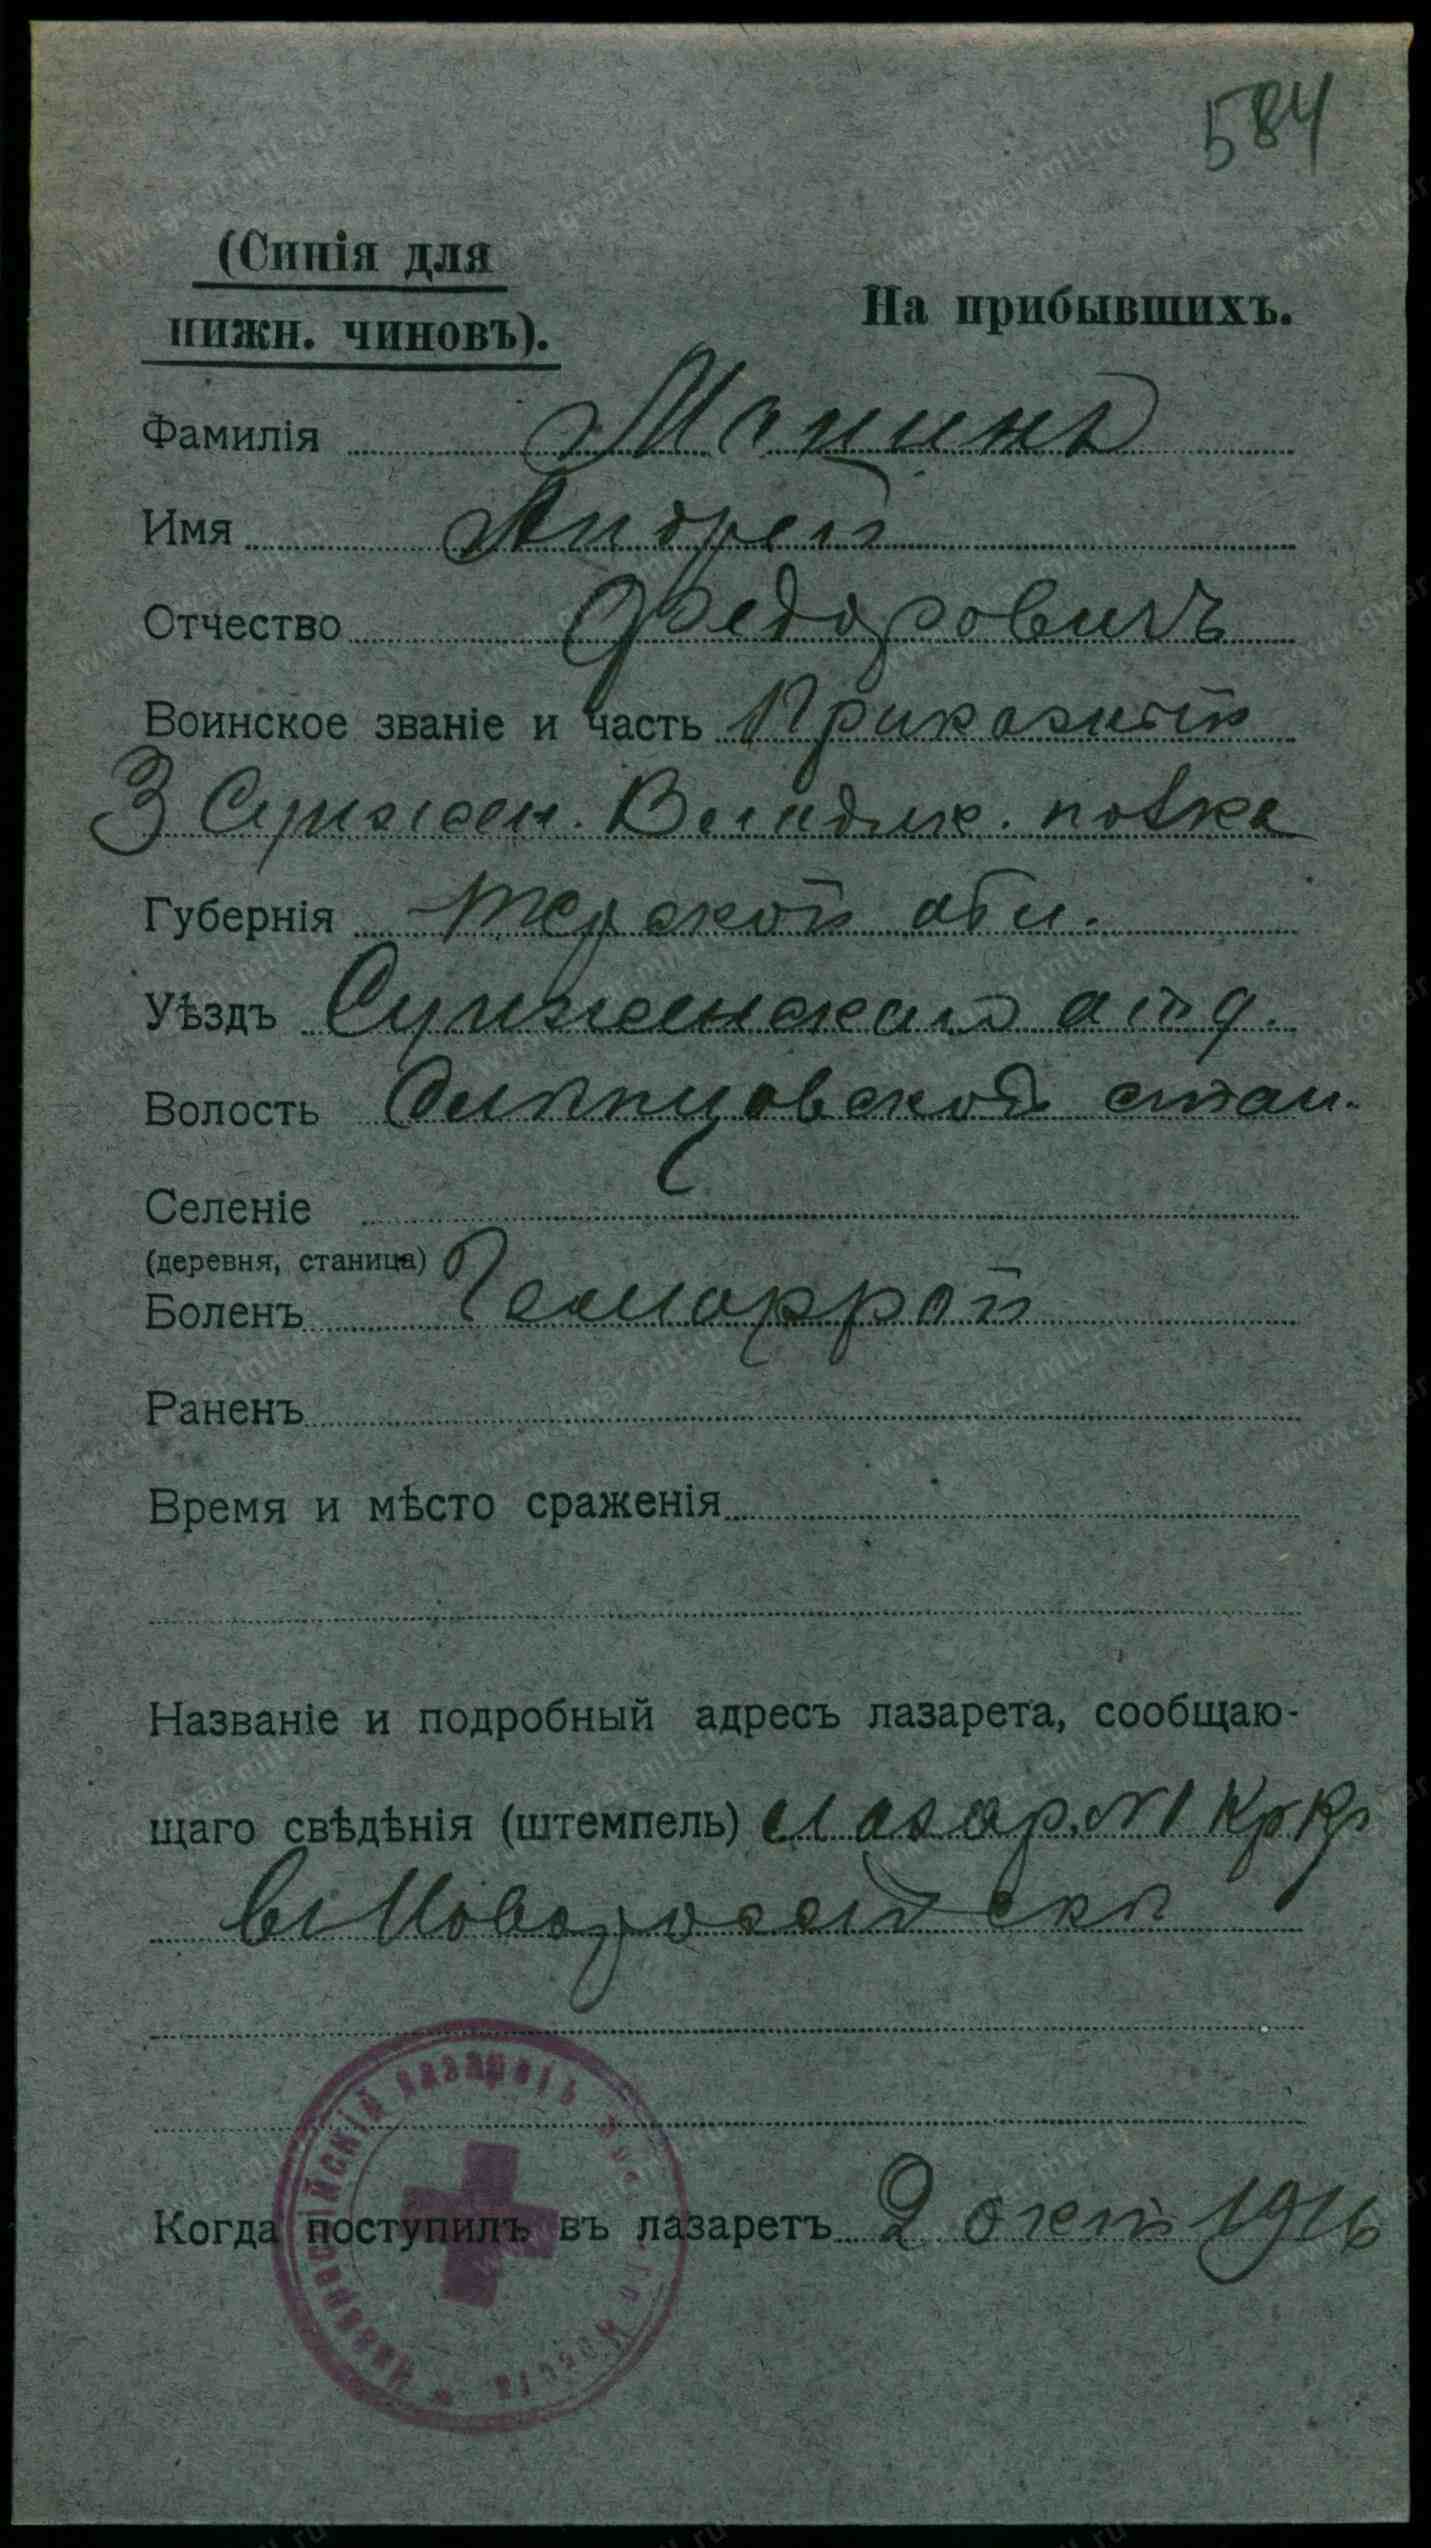 584
(Синія для
нижн. чиновъ).
На прибывшихъ.
Фамилія Мацинъ
Имя Андрей
Отчество Федоровичъ
Воинское званіе и часть Приказный
3 Сунжен. Владик. полка
Губернія Терской обл.
Уѣздъ Сунженскаго отд.
Волость Слѣпцовской стан.
Селеніе
(деревня, станица)
Боленъ Гемморрой
Раненъ
Время и мѣсто сраженія
Названіе и подробный адресъ лазарета, сообщаю-
щаго свѣдѣнія (штемпель) Лазар. №1 Кр Кр
въ Новороссійскѣ
Новороссійскій лазаретъ Креста
Когда поступилъ въ лазаретъ 2 окт 1916